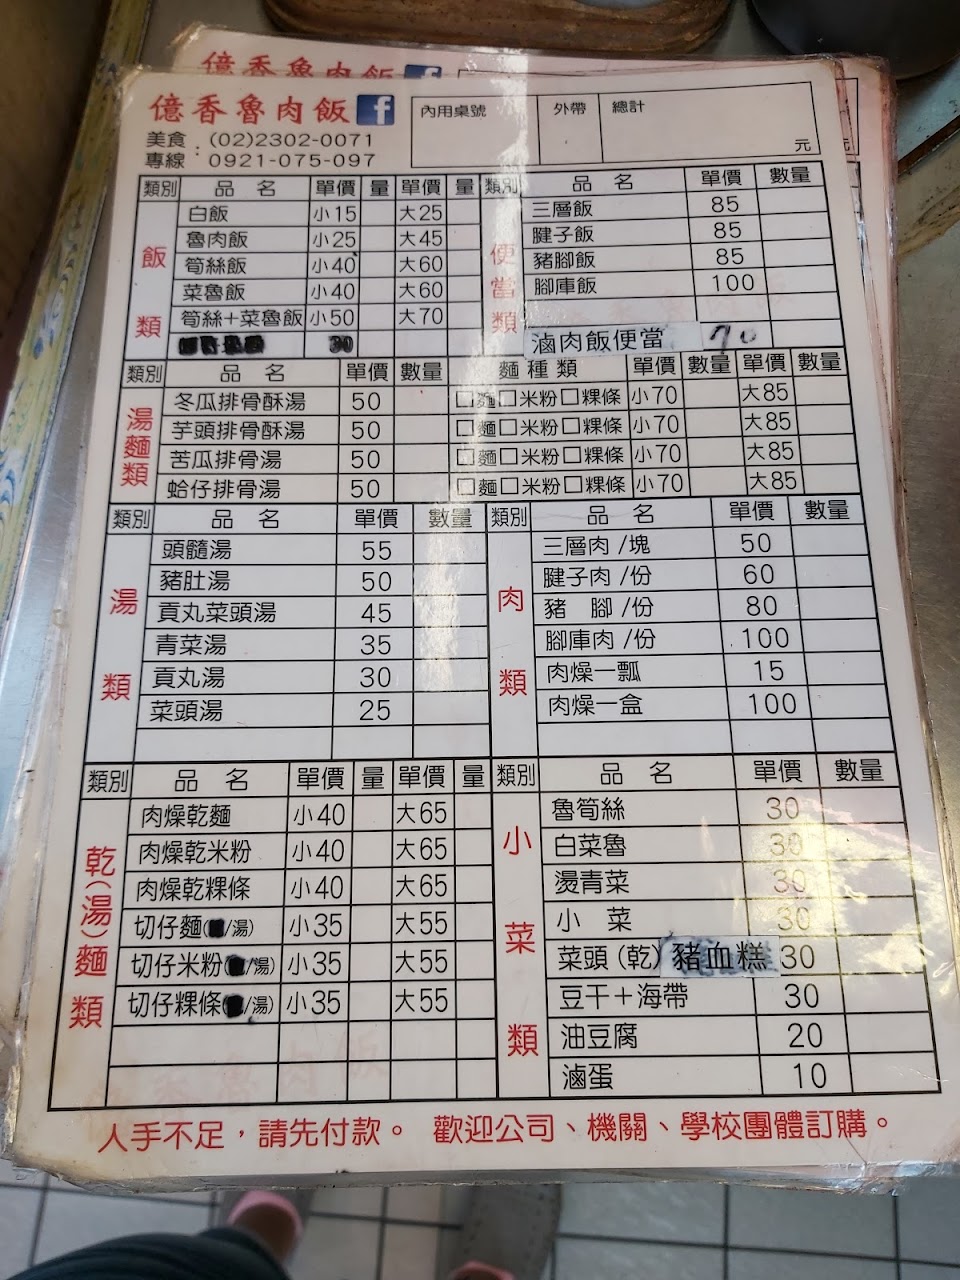 億香魯肉飯
億香魯肉飯 f 內用桌號 外帶 總計 元
美食專線：(02)2302-0071
0921-075-097
類別 品名 單價 量 單價 量 類別 品名 單價 數量
飯類 便當類
白飯 小15 大25 三層飯 85
魯肉飯 小25 大45 腱子飯 85
筍絲飯 小40 大60 豬腳飯 85
菜魯飯 小40 大60 腳庫飯 100
筍絲+菜魯飯 小50 大70
30 滷肉飯便當 90
類別 品名 單價 數量 麵種類 單價 數量 單價 數量
湯麵類
冬瓜排骨酥湯 50 □麵□米粉□粿條 小70 大85
芋頭排骨酥湯 50 □麵□米粉□粿條 小70 大85
苦瓜排骨湯 50 □麵□米粉□粿條 小70 大85
蛤仔排骨湯 50 □麵□米粉□粿條 小70 大85
類別 品名 單價 數量 類別 品名 單價 數量
湯類 肉類
頭髓湯 55 三層肉/塊 50
豬肚湯 50 腱子肉/份 60
貢丸菜頭湯 45 豬腳/份 80
青菜湯 35 腳庫肉/份 100
貢丸湯 30 肉燥一瓢 15
菜頭湯 25 肉燥一盒 100
類別 品名 單價 量 單價 量 類別 品名 單價 數量
乾(湯)麵類 小菜類
肉燥乾麵 小40 大65 魯筍絲 30
肉燥乾米粉 小40 大65 白菜魯 30
肉燥乾粿條 小40 大65 燙青菜 30
切仔麵(/湯) 小35 大55 小菜 30
切仔米粉(/湯) 小35 大55 菜頭(乾) 豬血糕 30
切仔粿條(/湯) 小35 大55 豆干+海帶 30
油豆腐 20
滷蛋 10
人手不足，請先付款。 歡迎公司、機關、學校團體訂購。